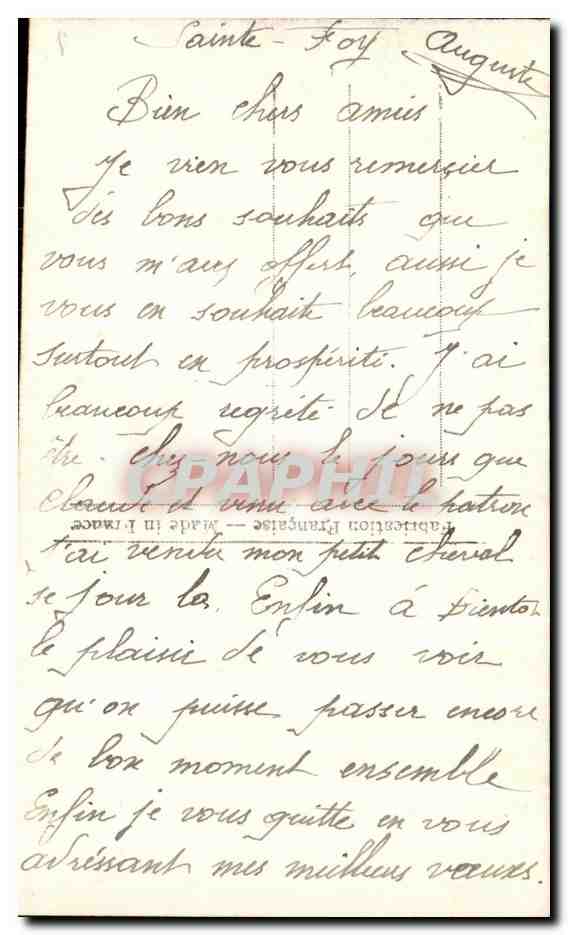 Sainte-Foy Auguste
Bien chers amies
Je vien vous remerçier
dés bons souhaits que
vous m'avez offert, aussi je
vous en souhaite beaucoup
surtout en prospérité. J'ai
beaucoup regrété dé ne pas
être chez-nous le jours que
CPARAMA
claude et venu avec le patron
Fabrication Française — Made in France
J'ai vendu mon petit cheval
se jour la. Enfin á bientot
le plaisir dé vous voir
qu'on puisse passer encore
de bon moment ensemble
Enfin je vous quitte en vous
adréssant mes meilleurs vœuxs.